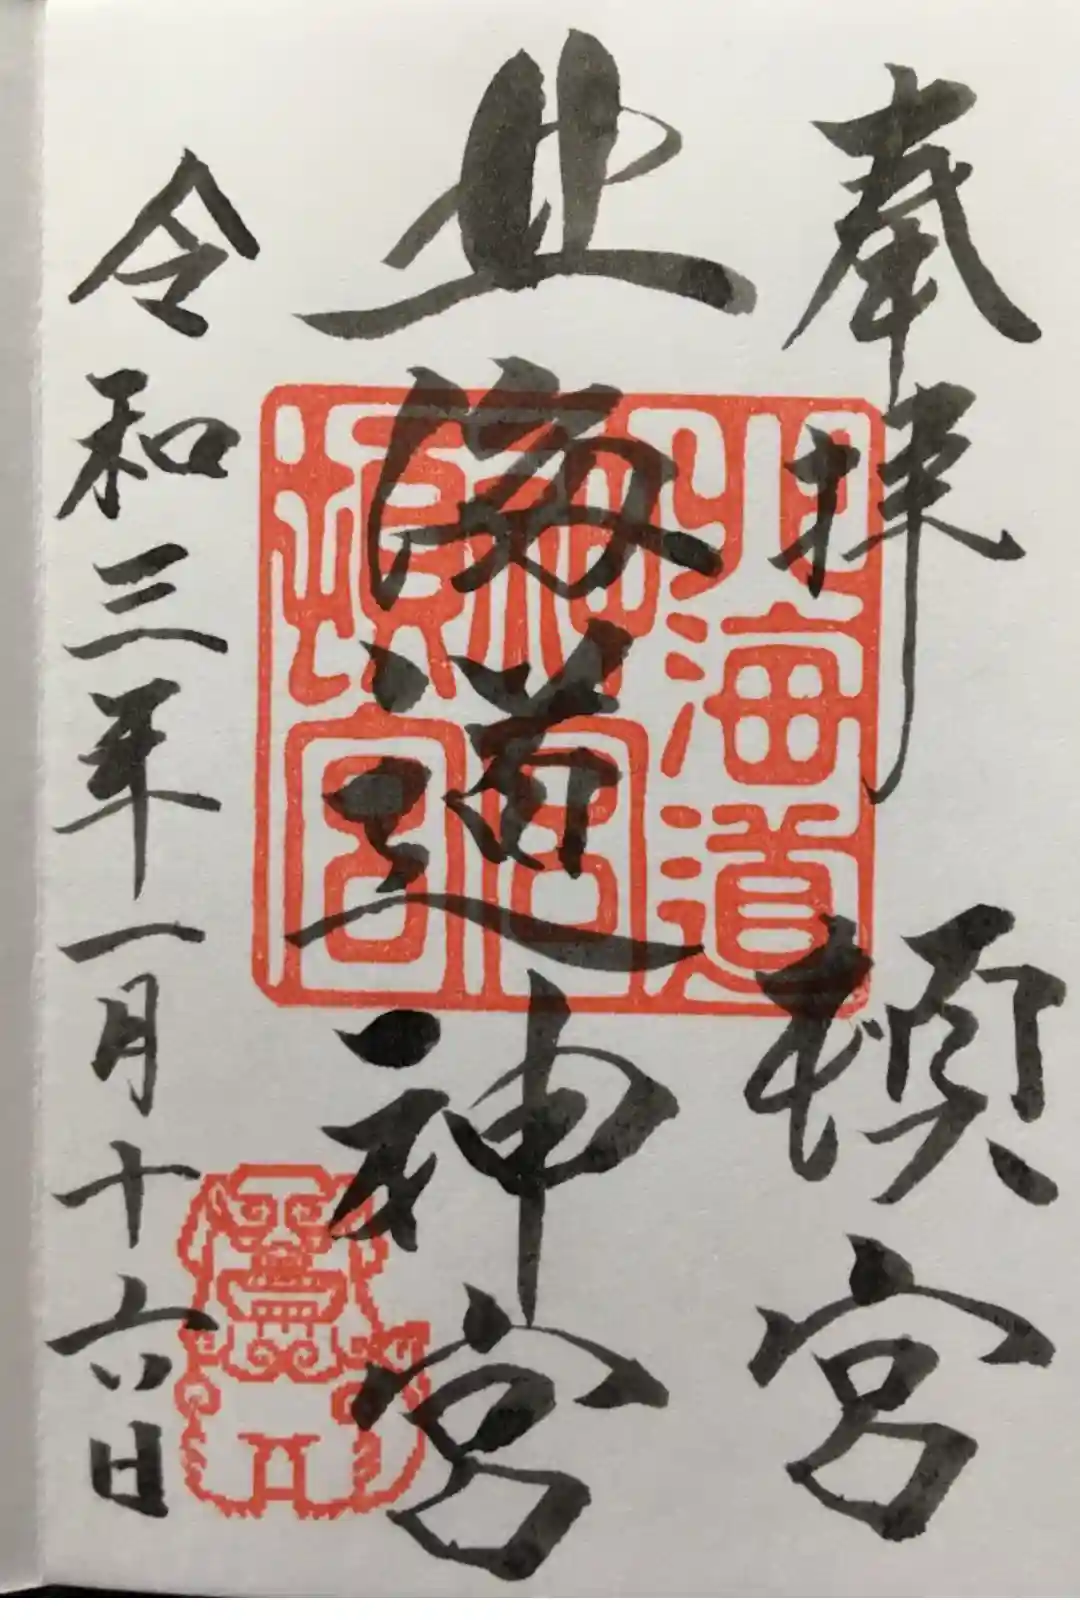 奉拝 頓宮
北海道神宮
北海道
神宮
頓宮
令和三年一月十六日